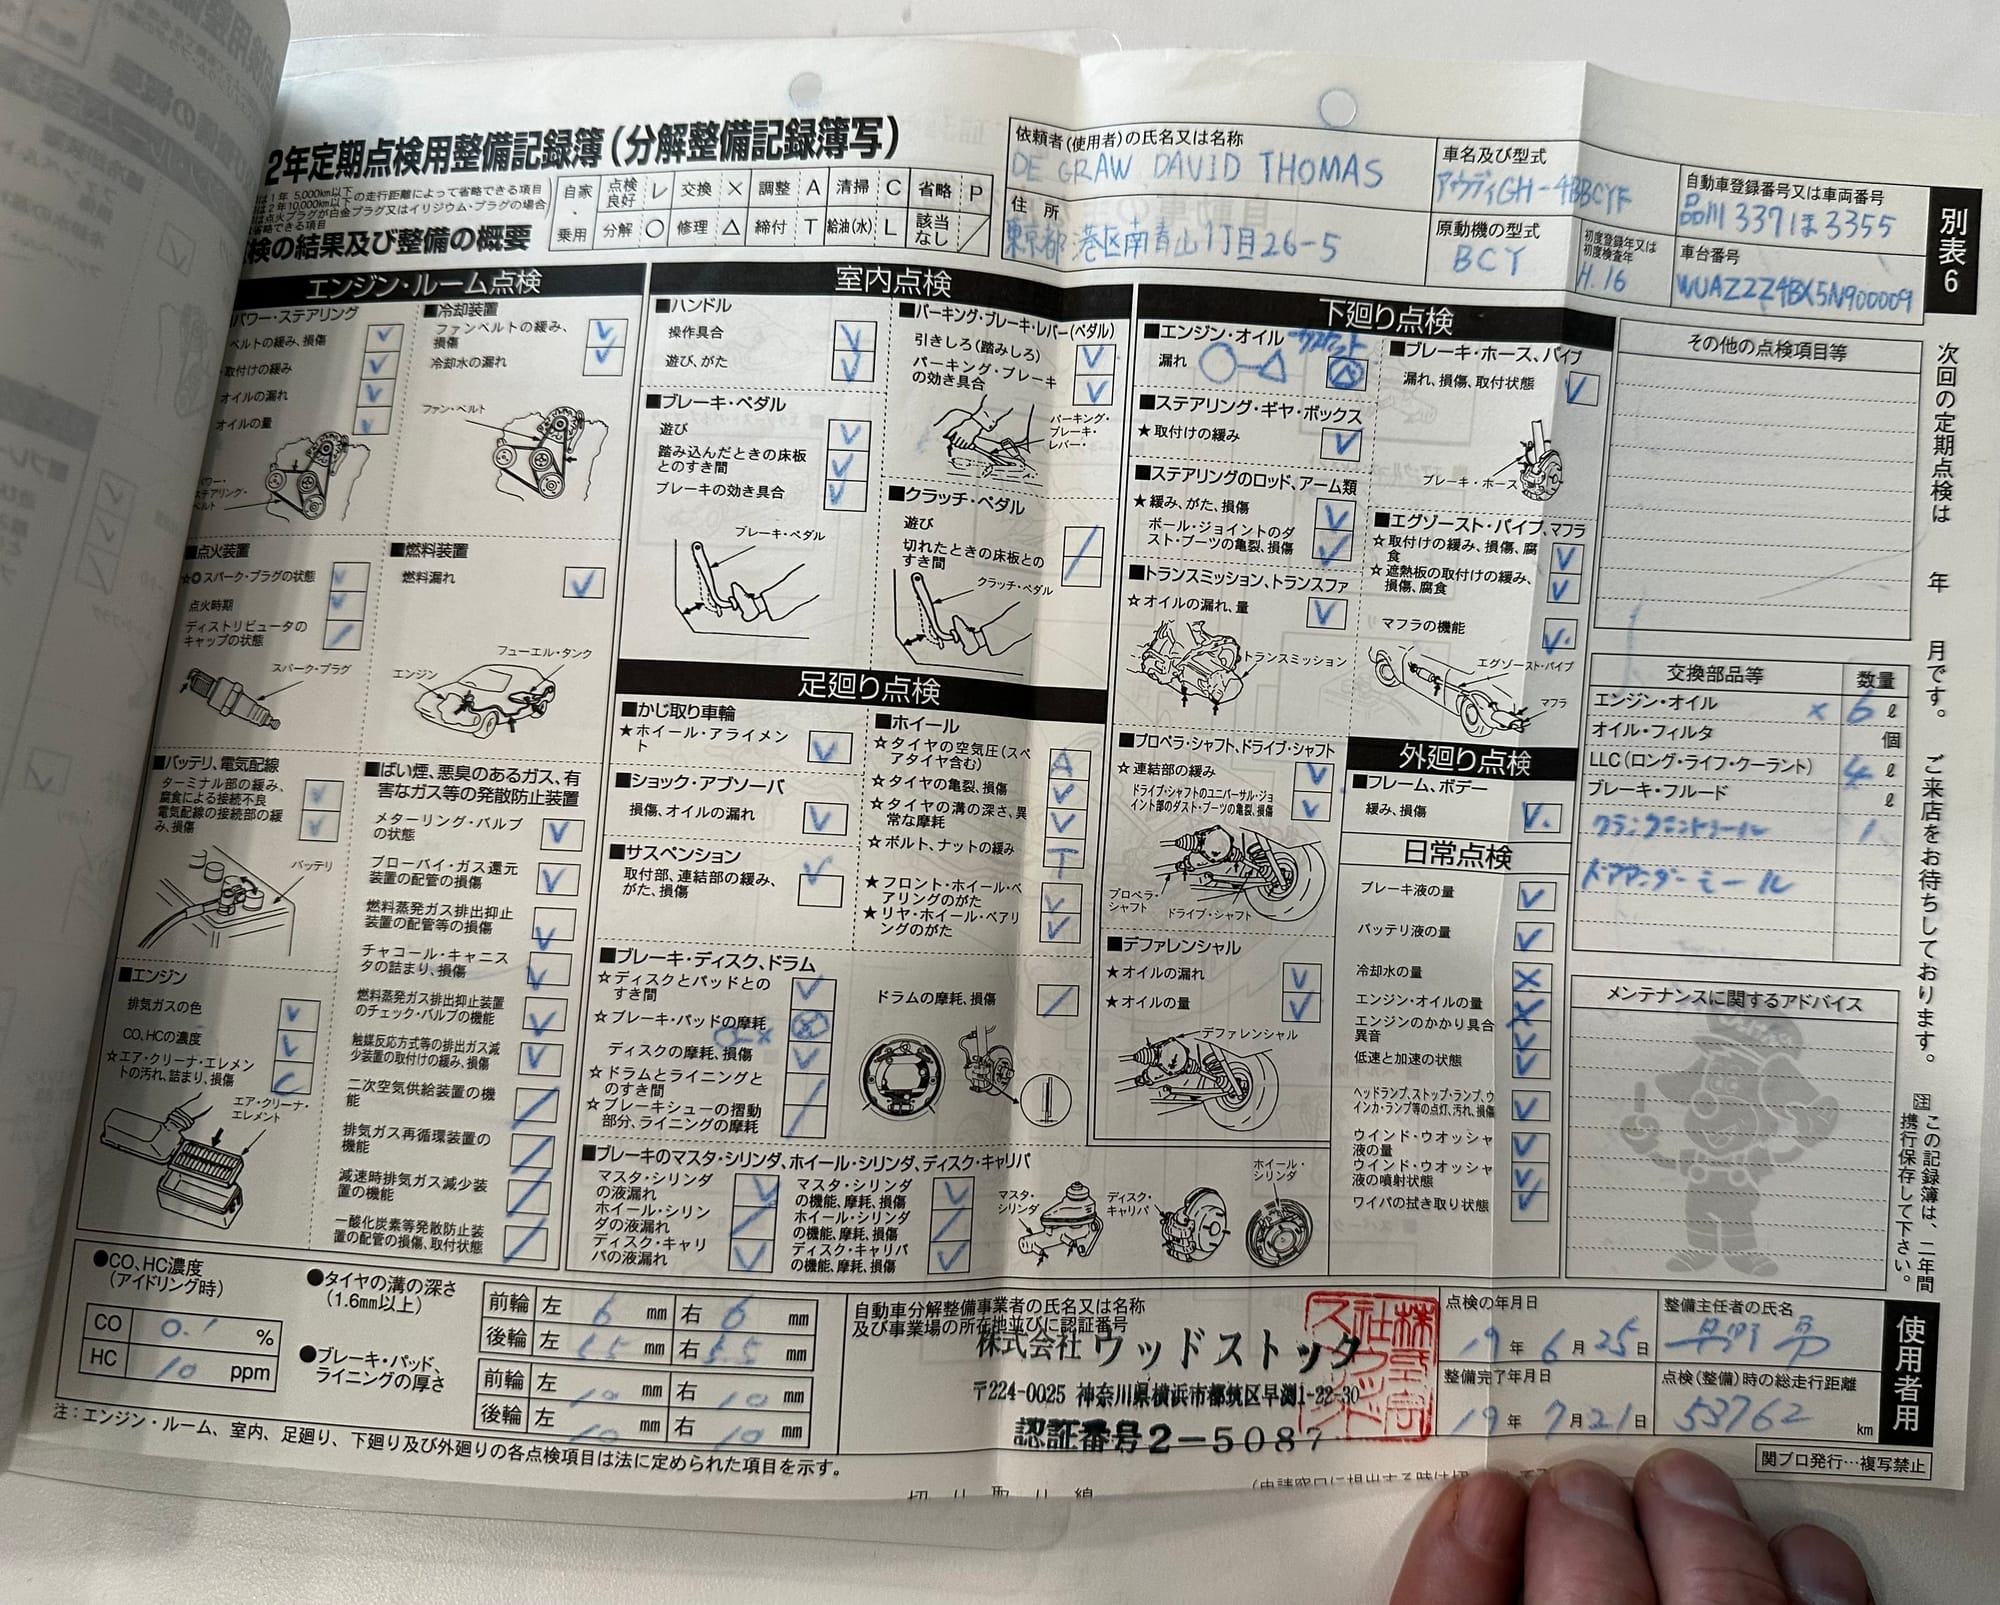 2年定期点検用整備記録簿(分解整備記録簿写)
は1年 5,000km以下の走行距離によって省略できる項目
は2年10,000km以下
は点火プラグが白金プラグ又はイリジウム・プラグの場合
省略できる項目
検の結果及び整備の概要
自家・乗用
点検良好 レ 交換 × 調整 A 清掃 C 省略 P
分解 ○ 修理 △ 締付 T 給油(水) L 該当なし /
依頼者(使用者)の氏名又は名称
DE GRAW DAVID THOMAS
住所
東京都 港区南青山1丁目26-5
車名及び型式
アウディGH-4BBCYF
原動機の型式
BCY
初度登録年又は初度検査年
H.16
自動車登録番号又は車両番号
品川 339 ほ 3355
車台番号
WUAZZZ4BX5N900009
別表6
エンジン・ルーム点検
パワー・ステアリング
ベルトの緩み、損傷
取付けの緩み
オイルの漏れ
オイルの量
パワー・ステアリング・ベルト
■冷却装置
ファンベルトの緩み、損傷
冷却水の漏れ
ファン・ベルト
■点火装置
☆◎スパーク・プラグの状態
点火時期
ディストリビュータのキャップの状態
スパーク・プラグ
■燃料装置
燃料漏れ
フューエル・タンク
エンジン
■バッテリ、電気配線
ターミナル部の緩み、腐食による接続不良
電気配線の接続部の緩み、損傷
バッテリ
■エンジン
排気ガスの色
CO、HCの濃度
☆エア・クリーナ・エレメントの汚れ、詰まり、損傷
エア・クリーナ・エレメント
■ばい煙、悪臭のあるガス、有害なガス等の発散防止装置
メターリング・バルブの状態
ブローバイ・ガス還元装置の配管の損傷
燃料蒸発ガス排出抑止装置の配管等の損傷
チャコール・キャニスタの詰まり、損傷
燃料蒸発ガス排出抑止装置のチェック・バルブの機能
触媒反応方式等の排出ガス減少装置の取付けの緩み、損傷
二次空気供給装置の機能
排気ガス再循環装置の機能
減速時排気ガス減少装置の機能
一酸化炭素等発散防止装置の配管の損傷、取付状態
室内点検
■ハンドル
操作具合
遊び、がた
■ブレーキ・ペダル
遊び
踏み込んだときの床板とのすき間
ブレーキの効き具合
ブレーキ・ペダル
■パーキング・ブレーキ・レバー(ペダル)
引きしろ(踏みしろ)
パーキング・ブレーキの効き具合
パーキング・ブレーキ・レバー・
■クラッチ・ペダル
遊び
切れたときの床板とのすき間
クラッチ・ペダル
足廻り点検
■かじ取り車輪
★ホイール・アライメント
■ショック・アブソーバ
損傷、オイルの漏れ
■サスペンション
取付部、連結部の緩み、がた、損傷
■ホイール
☆タイヤの空気圧(スペアタイヤ含む) A
☆タイヤの亀裂、損傷
☆タイヤの溝の深さ、異常な摩耗
☆ボルト、ナットの緩み T
★フロント・ホイール・ベアリングのがた
★リヤ・ホイール・ベアリングのがた
■ブレーキ・ディスク、ドラム
☆ディスクとパッドとのすき間
☆ブレーキ・パッドの摩耗
ディスクの摩耗、損傷
☆ドラムとライニングとのすき間
☆ブレーキシューの摺動部分、ライニングの摩耗
ドラムの摩耗、損傷
■ブレーキのマスタ・シリンダ、ホイール・シリンダ、ディスク・キャリパ
マスタ・シリンダの液漏れ
ホイール・シリンダの液漏れ
ディスク・キャリパの液漏れ
マスタ・シリンダの機能、摩耗、損傷
ホイール・シリンダの機能、摩耗、損傷
ディスク・キャリパの機能、摩耗、損傷
マスタ・シリンダ
ディスク・キャリパ
ホイール・シリンダ
下廻り点検
■エンジン・オイル
漏れ ○-△
■ステアリング・ギヤ・ボックス
★取付けの緩み
■ステアリングのロッド、アーム類
★緩み、がた、損傷
ボール・ジョイントのダスト・ブーツの亀裂、損傷
■トランスミッション、トランスファ
☆オイルの漏れ、量
トランスミッション
■プロペラ・シャフト、ドライブ・シャフト
☆連結部の緩み
ドライブ・シャフトのユニバーサル・ジョイント部のダスト・ブーツの亀裂、損傷
プロペラ・シャフト
ドライブ・シャフト
■デファレンシャル
★オイルの漏れ
★オイルの量
デファレンシャル
■ブレーキ・ホース、パイプ
漏れ、損傷、取付状態
ブレーキ・ホース
■エグゾースト・パイプ、マフラ
☆取付けの緩み、損傷、腐食
☆遮熱板の取付けの緩み、損傷、腐食
マフラの機能
エグゾースト・パイプ
マフラ
外廻り点検
■フレーム、ボデー
緩み、損傷
日常点検
ブレーキ液の量
バッテリ液の量
冷却水の量
エンジン・オイルの量
エンジンのかかり具合異音
低速と加速の状態
ヘッドランプ、ストップ・ランプ、ウインカ・ランプ等の点灯、汚れ、損傷
ウインド・ウオッシャ液の量
ウインド・ウオッシャ液の噴射状態
ワイパの拭き取り状態
その他の点検項目等
交換部品等 数量
エンジン・オイル × 6 ℓ
オイル・フィルタ 個
LLC(ロング・ライフ・クーラント) 4 ℓ
ブレーキ・フルード ℓ
クランクエンドシール 1
ドアアンダーシール
メンテナンスに関するアドバイス
次回の定期点検は 年 月です。ご来店をお待ちしております。
注 この記録簿は、二年間携行保存して下さい。
●CO、HC濃度(アイドリング時)
CO 0.1 %
HC 10 ppm
●タイヤの溝の深さ(1.6mm以上)
前輪 左 6 mm 右 6 mm
後輪 左 5.5 mm 右 5.5 mm
●ブレーキ・パッド、ライニングの厚さ
前輪 左 10 mm 右 10 mm
後輪 左 10 mm 右 10 mm
自動車分解整備事業者の氏名又は名称及び事業場の所在地並びに認証番号
株式会社ウッドストック
〒224-0025 神奈川県横浜市都筑区早渕1-22-30
認証番号2-5087
点検の年月日
19年6月25日
整備完了年月日
19年7月21日
整備主任者の氏名
点検(整備)時の総走行距離
53762 km
使用者用
注:エンジン・ルーム、室内、足廻り、下廻り及び外廻りの各点検項目は法に定められた項目を示す。
関プロ発行…複写禁止
切り取り線